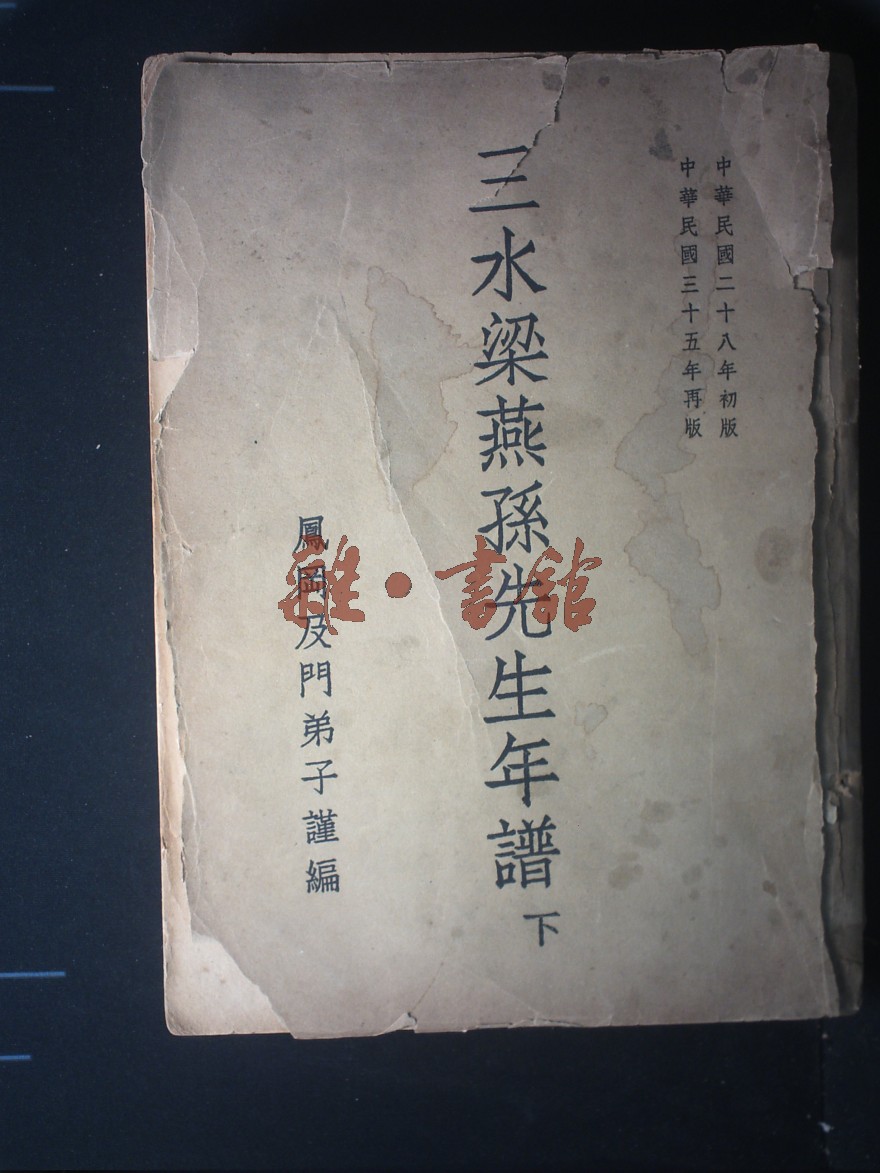 中華民國二十八年初版
中華民國三十五年再版
三水梁燕孫先生年譜 下
鳳岡及門弟子謹編
雜·書館